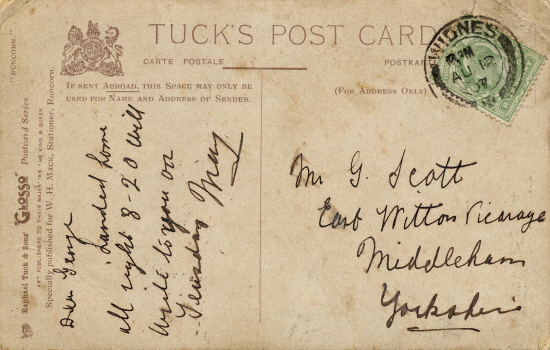 TUCK'S POST CARD
CARTE POSTALE
POSTKAR
IF SENT ABROAD, THIS SPACE MAY ONLY BE
USED FOR NAME AND ADDRESS OF SENDER.
(FOR ADDRESS ONLY)
WIDNES
AU 12
07
"RUNCORN."
Raphael Tuck & Sons' "GLOSSO" Postcard Series
ART PUBLISHERS TO THEIR MAJESTIES THE KING & QUEEN
Specially published for W. H. Mack, Stationer, Runcorn.
Dear George
Landed home
all right 8-20 will
write to you on
Tuesday May
Mr G. Scott
East Witton Vicarage
Middleham
Yorkshire